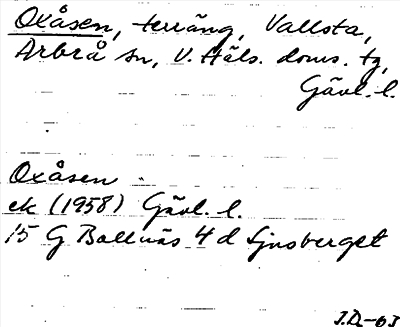 Oxåsen, terräng, Vallsta,
Arbrå sn, V. Häls. doms. tg,
Gävl. l.
Oxåsen
ek (1958) Gävl. l.
15 G Bollnäs 4 d Ljusberget
J.D.-63